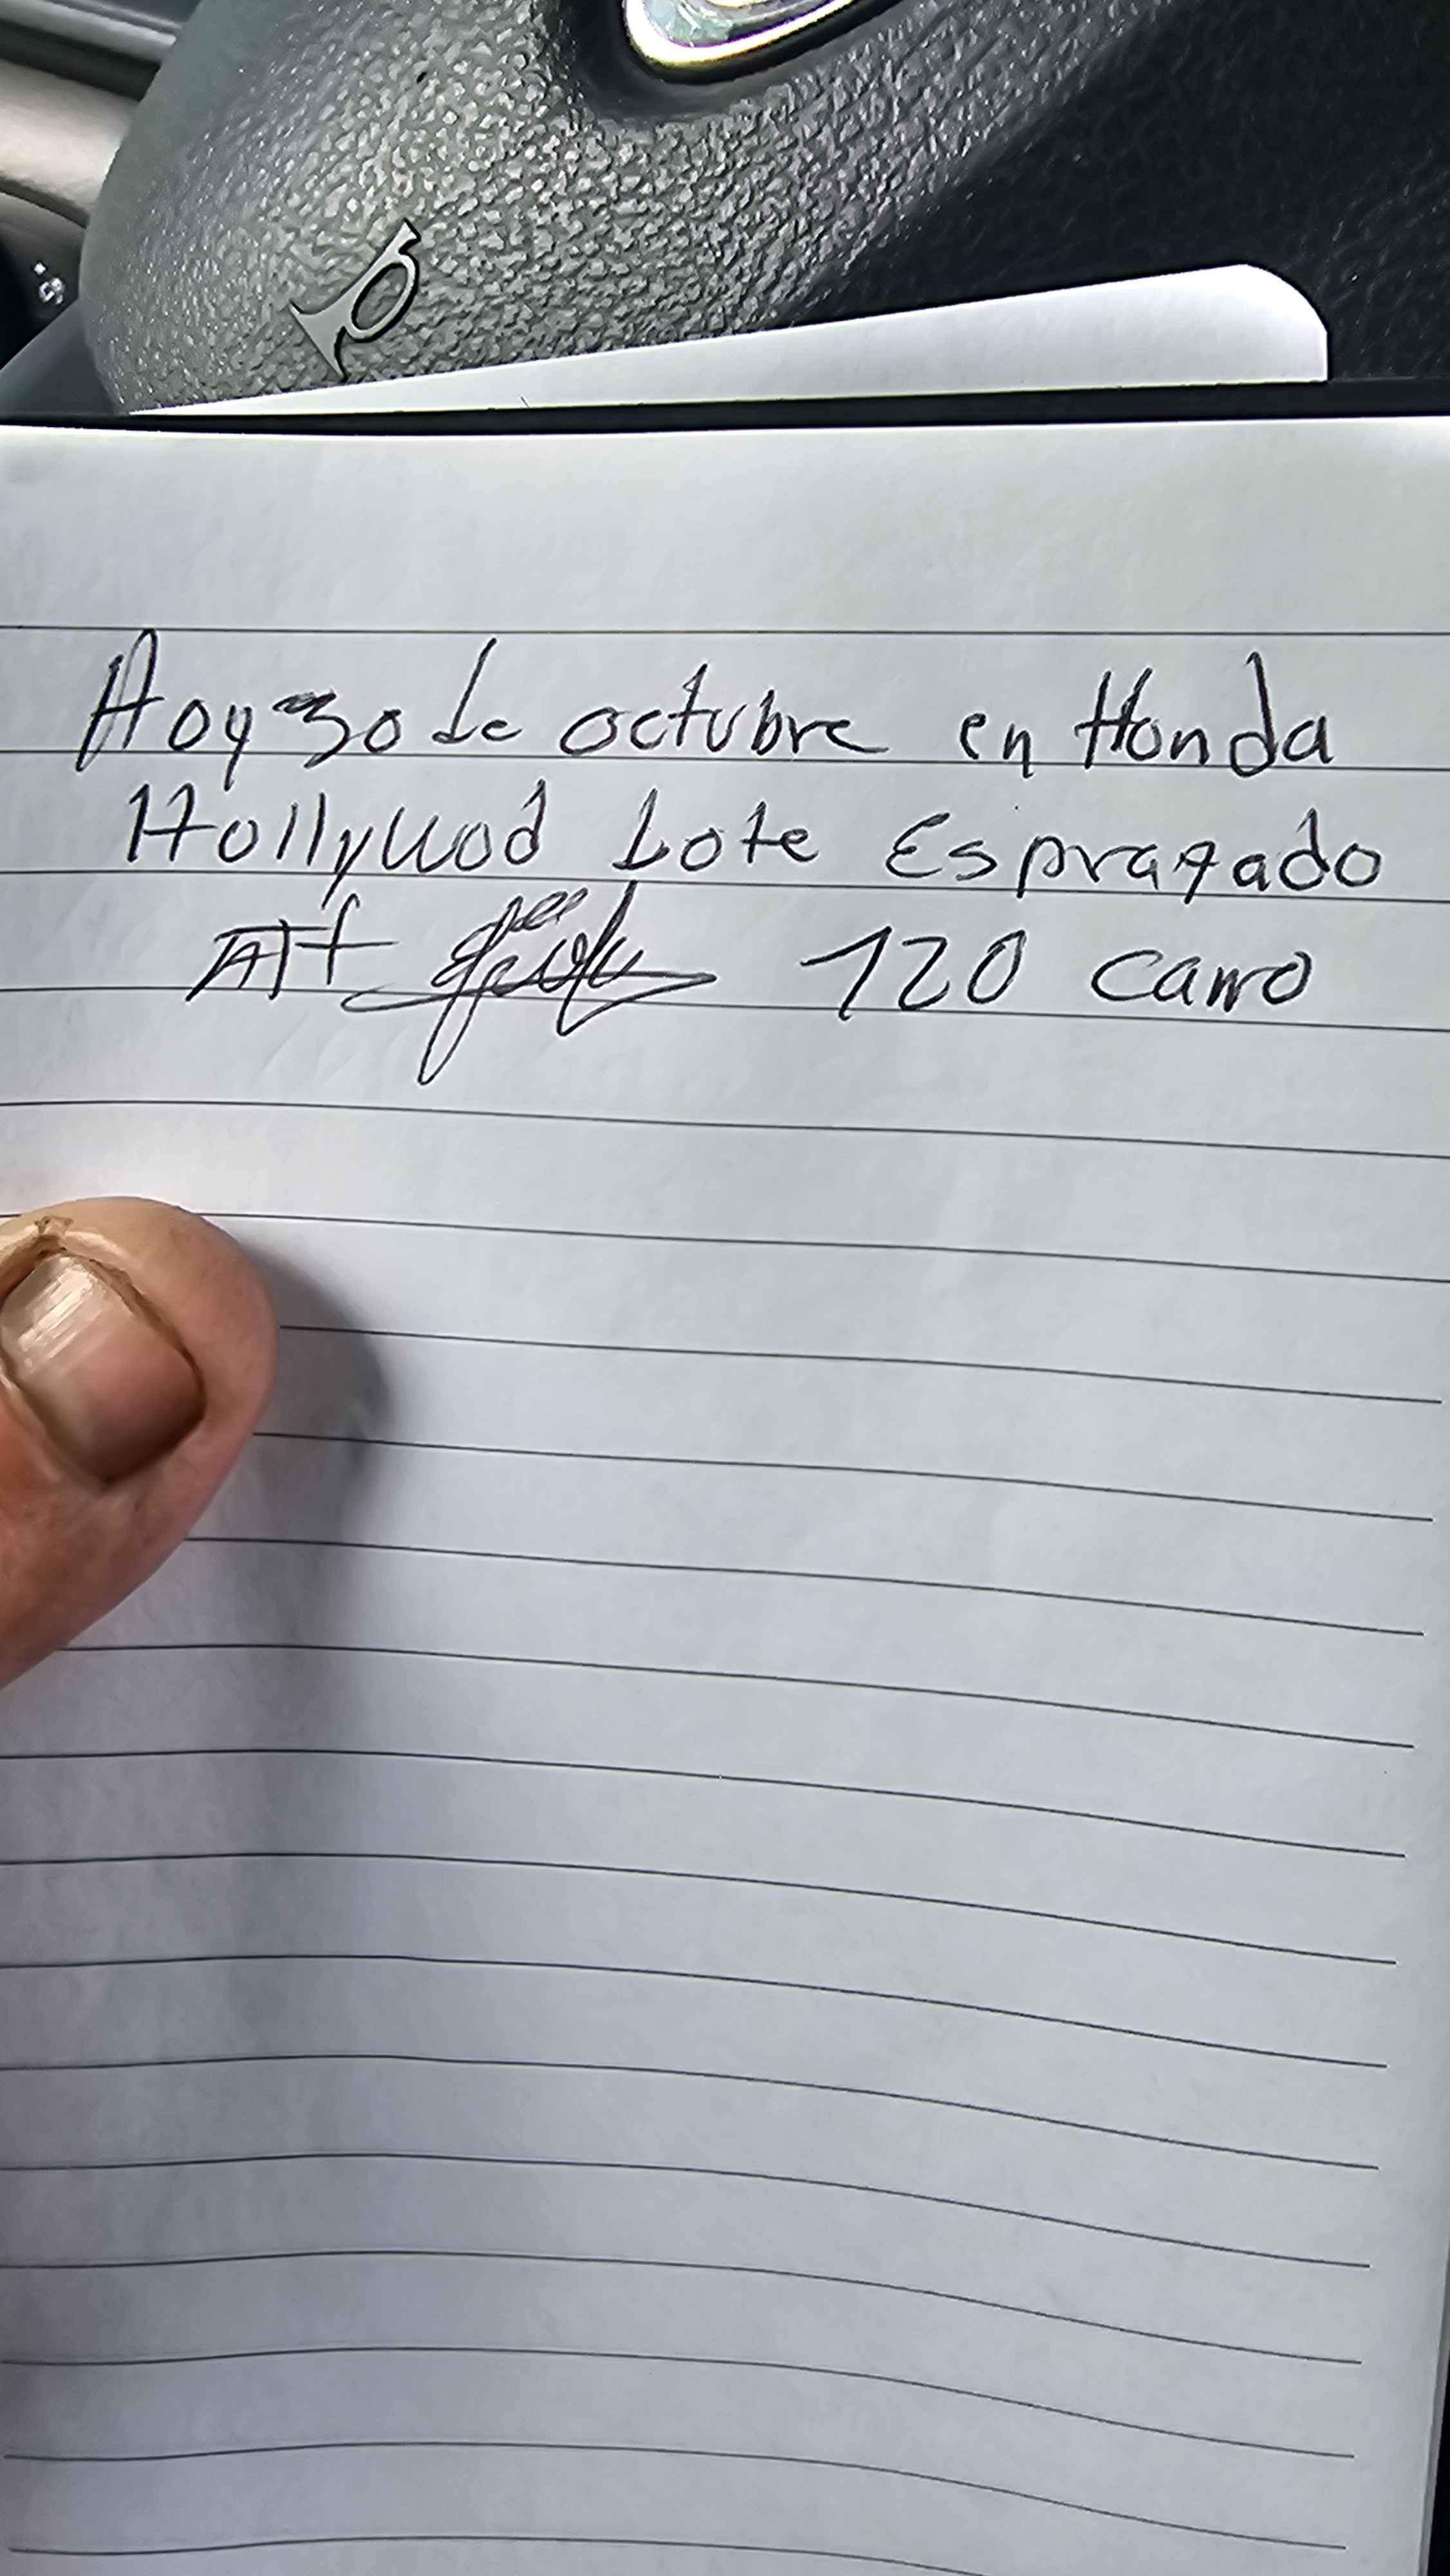 Hoy 30 de octubre en Honda
Hollywod Lote Espragado
Att 120 carro